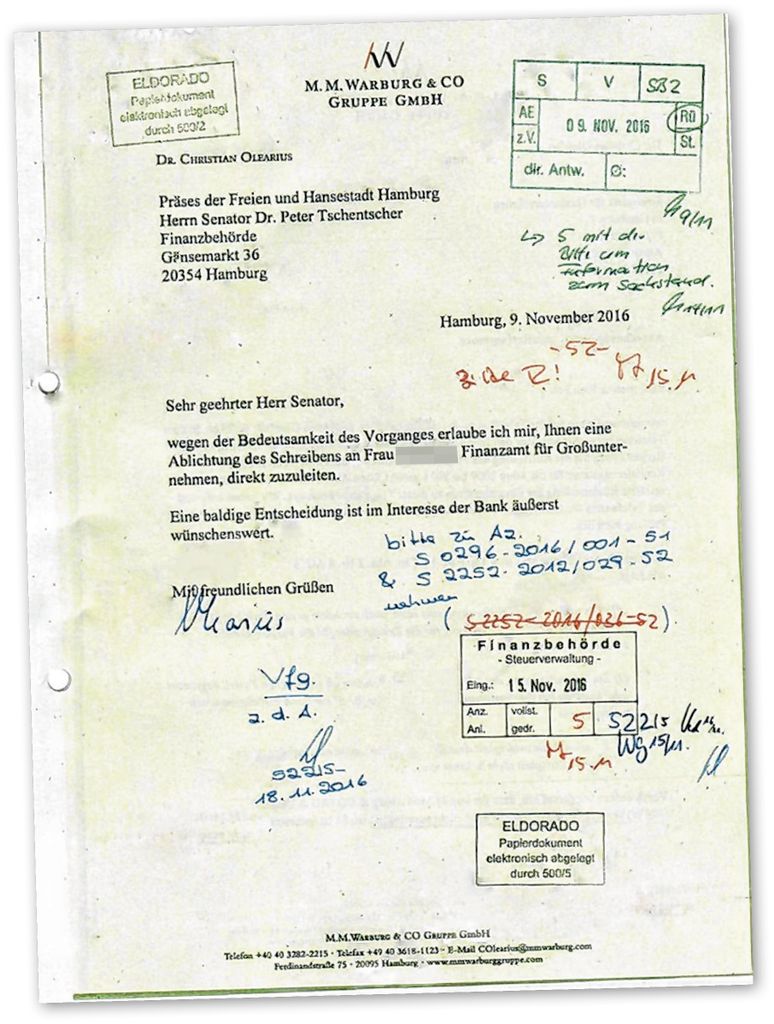 ELDORADO
Papierdokument
elektronisch abgelegt
durch 500/2
M.M.WARBURG & CO
GRUPPE GMBH
S V SB2
AE
z.V.
09. NOV. 2016
Rü
St.
dir. Antw. Ø:
DR. CHRISTIAN OLEARIUS
Präses der Freien und Hansestadt Hamburg
Herrn Senator Dr. Peter Tschentscher
Finanzbehörde
Gänsemarkt 36
20354 Hamburg
9/11
↳ 5 mit der
Bitte um
Information
zum Sachstand.
14/11
Hamburg, 9. November 2016
-52-
15.11
Sehr geehrter Herr Senator,
wegen der Bedeutsamkeit des Vorganges erlaube ich mir, Ihnen eine
Ablichtung des Schreibens an Frau Finanzamt für Großunter-
nehmen, direkt zuzuleiten.
Eine baldige Entscheidung ist im Interesse der Bank äußerst
wünschenswert.
bitte zu Az.
S 0296-2016/001-51
& S 2252-2012/029-52
nehmen
(S 2252-2016/026-52)
Mit freundlichen Grüßen
Olearius
Finanzbehörde
- Steuerverwaltung -
Eing.: 15. Nov. 2016
Anz.
Anl.
vollst.
gedr.
5
52215
Wg 15/11.
15.11
Vfg.
z.d.A.
52215-
18.11.2016
ELDORADO
Papierdokument
elektronisch abgelegt
durch 500/5
M.M.WARBURG & CO GRUPPE GMBH
Telefon +40 40 3282-2215 · Telefax +49 40 3618-1123 · E-Mail COlearius@mmwarburg.com
Ferdinandstraße 75 · 20095 Hamburg · www.mmwarburggruppe.com